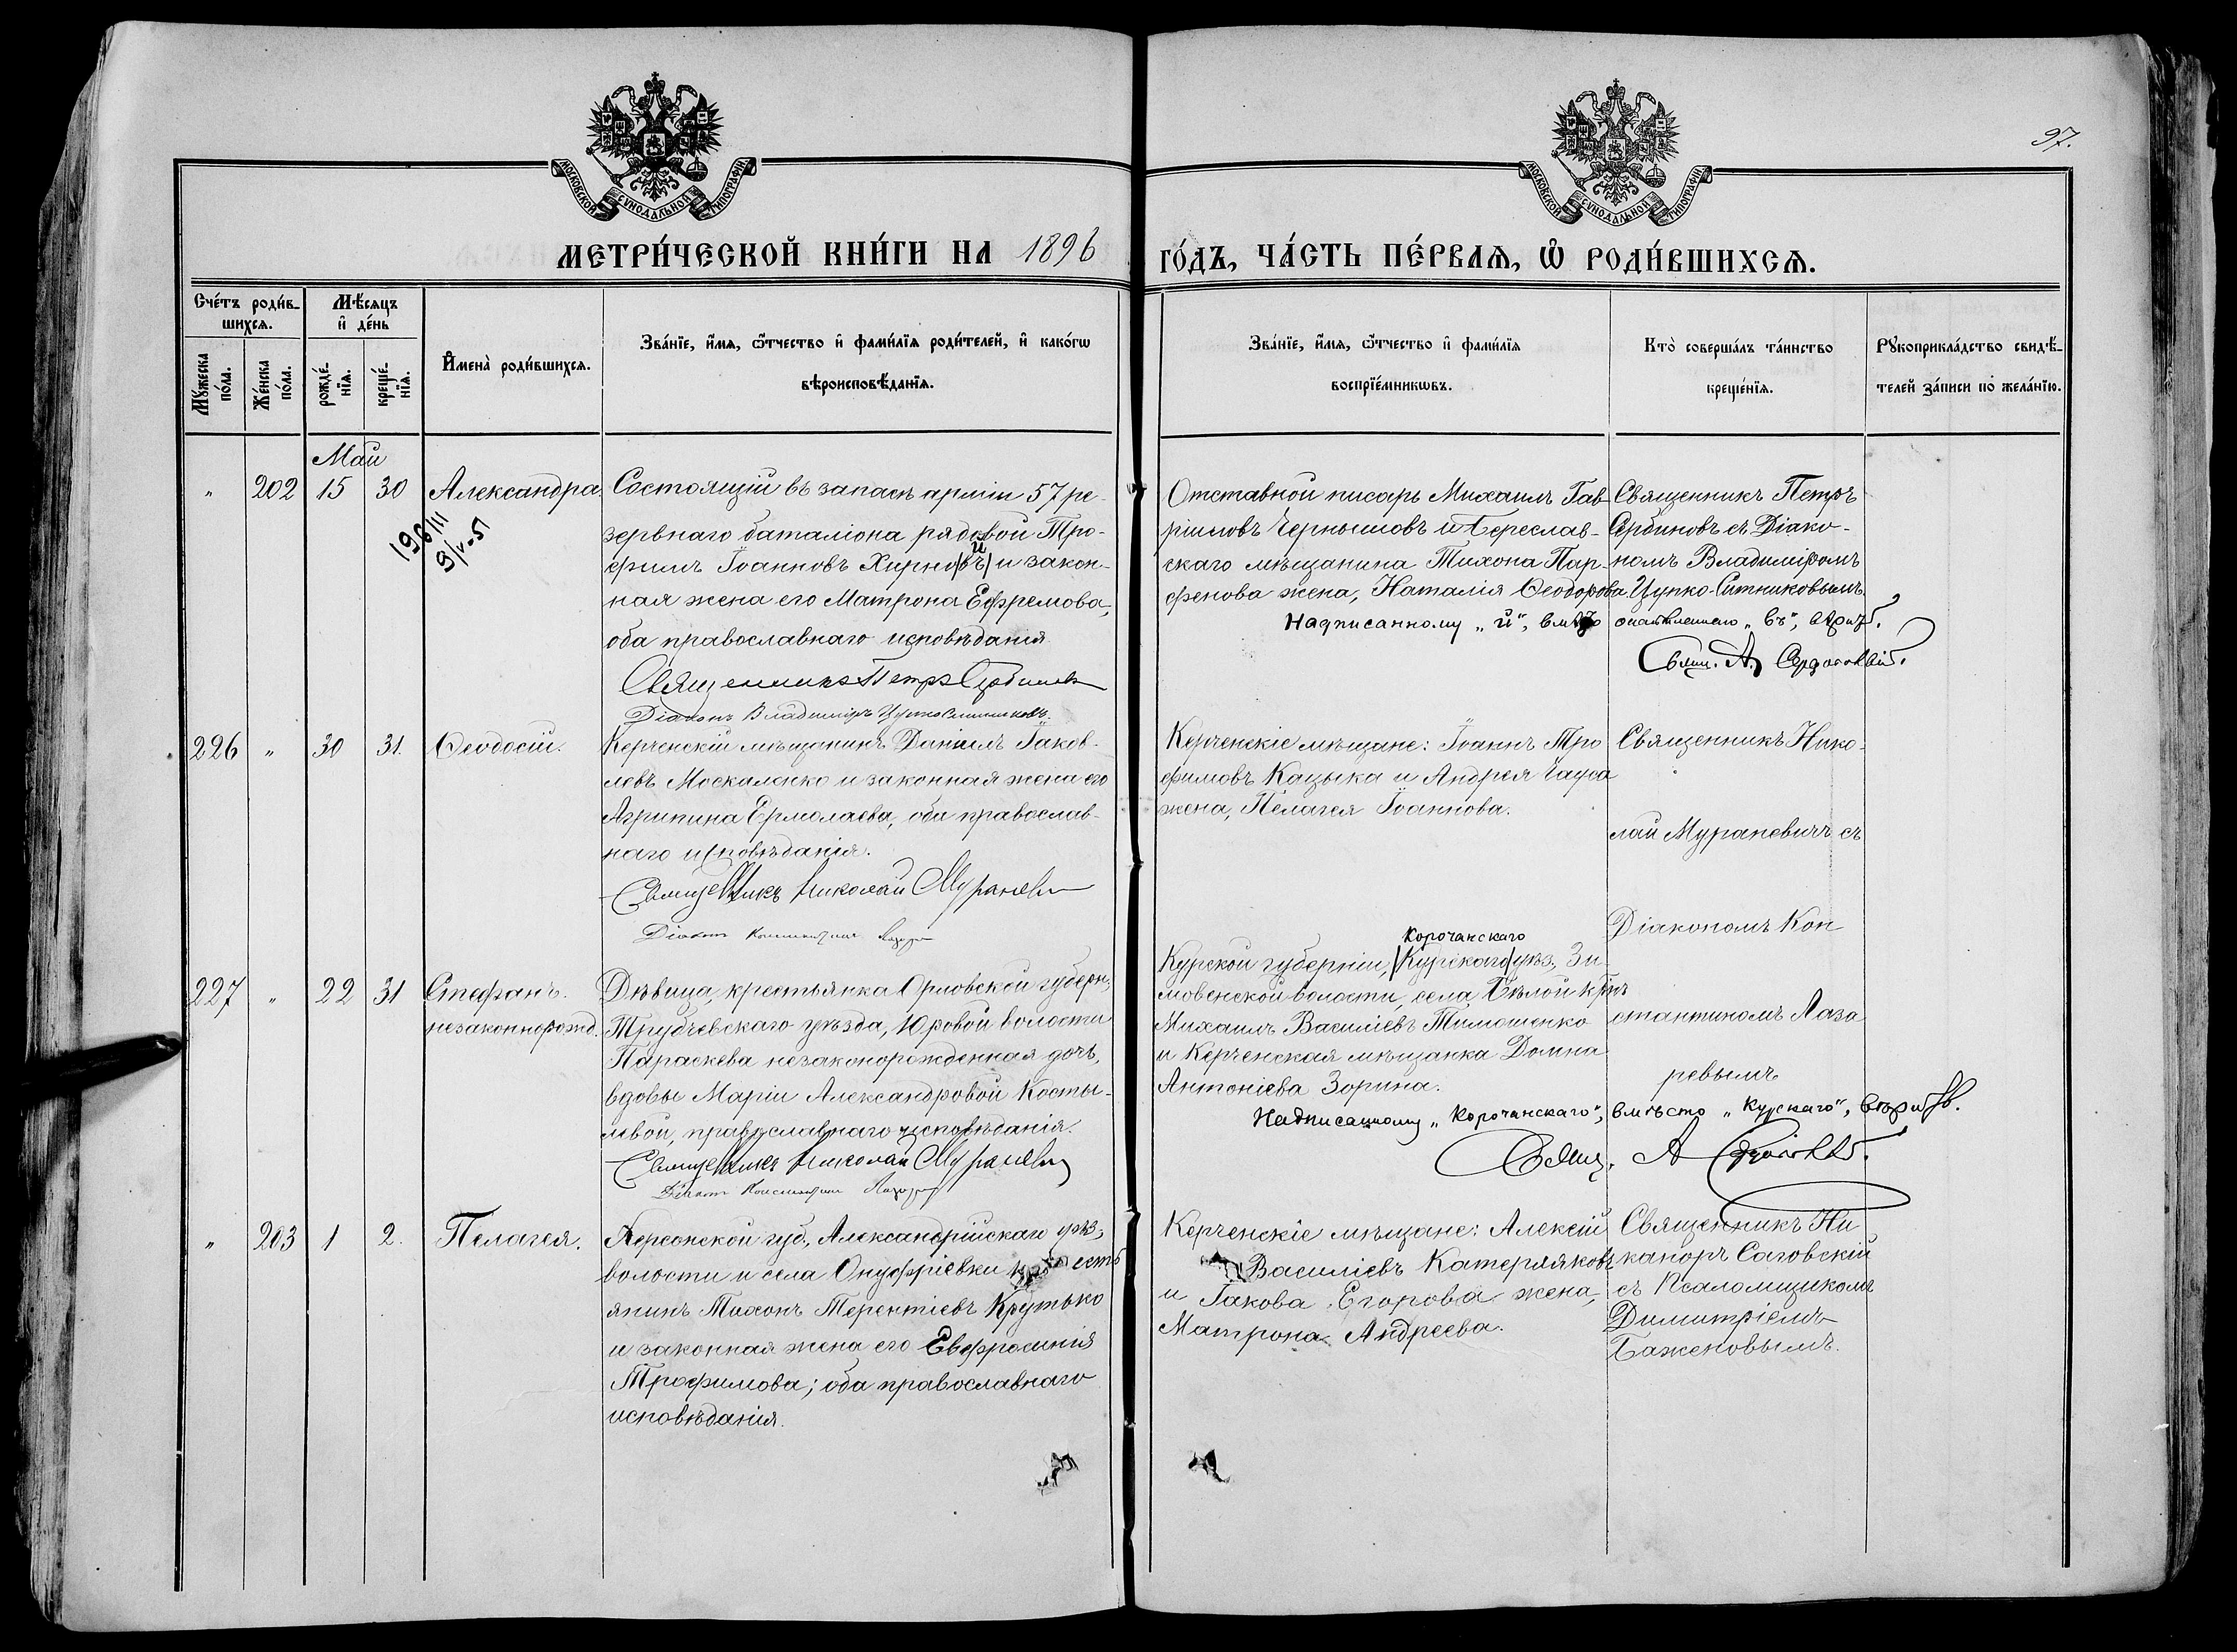 97.
МОСКОВСКОЙ СѴНОДАЛЬНОЙ ТИПОГРАФІИ
МОСКОВСКОЙ СѴНОДАЛЬНОЙ ТИПОГРАФІИ
МЕТРИ́ЧЕСКОЙ КНИ́ГИ НА 1896 ГО́ДЪ, ЧА́СТЬ ПЕ́РВАѦ, Ѡ҆ РОДИ́ВШИХСѦ.
Сче́тъ роди́в-
шихсѧ.
Мꙋ́жеска по́ла.
Же́нска по́ла.
Мѣ́сѧцъ
и҆ де́нь
рожде́-
нїѧ.
креще́-
нїѧ.
И҆мена̀ роди́вшихсѧ.
Зва́нїе, и҆́мѧ, ѻ҆́тчество и҆ фами́лїѧ роди́телей, и҆ како́гѡ
вѣроисповѣ́данїѧ.
Зва́нїе, и҆́мѧ, ѻ҆́тчество и҆ фами́лїѧ
воспрїе́мникѡвъ.
Кто̀ соверша́лъ та́инство
креще́нїѧ.
Рꙋкоприкла́дство свидѣ́-
телей за́писи по жела́нїю.
Май
" 202 15 30 Александра.
Состоящій въ запасѣ арміи 57 ре-
зервнаго баталіона рядовой Тро-
й
фимъ Іоанновъ Хирно(въ) и закон-
ная жена его Матрона Ефремова,
оба православнаго исповѣданія
Священникъ Петръ Сербиновъ
Діаконъ Владиміръ Цупко-Ситниковъ.
Отставной писарь Михаилъ Гав-
ріиловъ Чернышовъ и Береслав-
скаго мѣщанина Тихона Пар-
фенова жена, Наталія Ѳеодорова
Священникъ Петръ
Сербиновъ съ Діако-
номъ Владиміромъ
Цупко-Ситниковымъ
Надписанному „й", вмѣсто „въ", вѣрить.
Свящ. А.
226 " 30 31. Ѳеодосій.
Керченскій мѣщанинъ Даніилъ Іаков-
левъ Москаленко и законная жена его
Агрипина Ермолаева, оба православ-
наго исповѣданія.
Священникъ Николай Мураневичъ
Діаконъ Константинъ Лазаревъ
Керченскіе мѣщане: Іоаннъ Тро
фимовъ Кацыка и Андрея Чауса
жена, Пелагея Іоаннова.
Священникъ Нико-
лай Мураневичъ съ
Діакономъ Кон
стантиномъ Лаза
ревымъ
227 " 22 31 Стефанъ.
незаконнорожд.
Дѣвица, крестьянка Орловской губерн,
Трубчевскаго уѣзда, Юровой волости
Параскева незаконорожденная дочь,
вдовы Маріи Александровой Косты-
левой, православнаго исповѣданія.
Священникъ Николай Мураневичъ
Діаконъ Константинъ Лазаревъ
Корочанскаго
Курской губерніи, (Курскаго) уѣз., Зи-
мовенской волости, села Бѣлой кр-нъ
Михаилъ Василіевъ Тимошенко
и Керченская мѣщанка Домна
Антоніева Зорина.
Надписанному „Корочанскаго", вмѣсто „Курскаго", вѣрить.
Свящ. А
" 203 1 2. Пелагея.
Херсонской губ., Александрійскаго уѣз.,
волости и села Онуфріевки крест
янинъ Тихонъ Терентіевъ Крутько
и законная жена его Евфросинія
Трофимова; оба православнаго
исповѣданія.
Керченскіе мѣщане: Алексій
Василіевъ Катерляковъ
и Іакова Егорова жена,
Матрона Андреева.
Священникъ Ни
каноръ Саговскій
съ Псаломщикомъ
Димитріемъ
Баженовымъ.